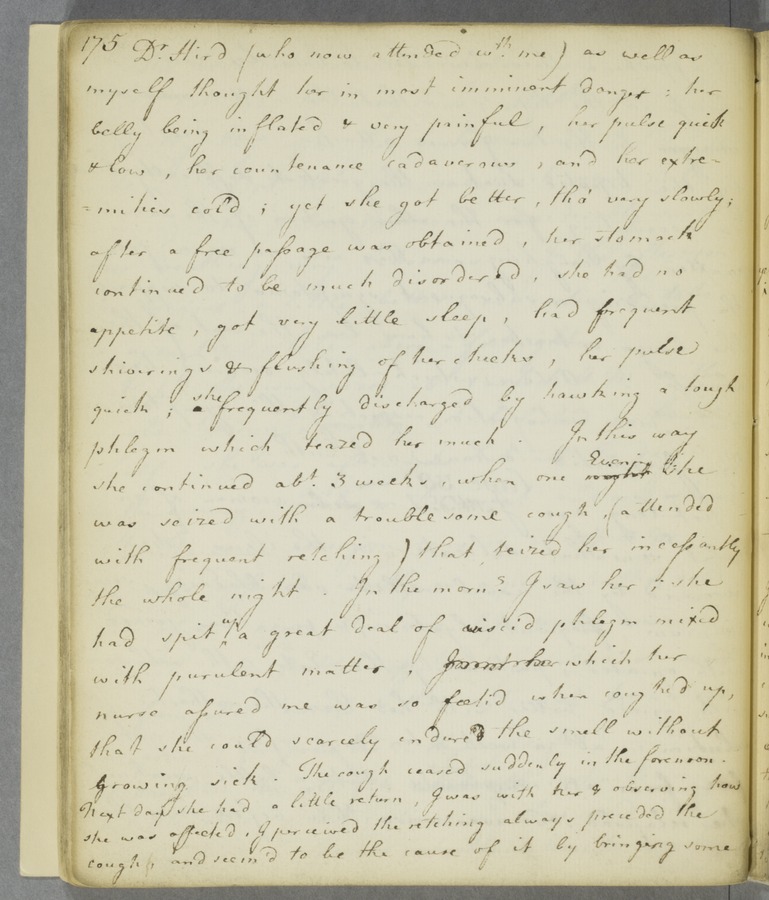 175 Dr. Hird (who now attended wth. me) as well as
myself thought her in most imminent danger : her
belly being inflated & very painful, her pulse quick
& low, her countenance cadaverous, and her extre-
=mities cold ; yet she got better, tho' very slowly ;
after a free passage was obtained, her stomach
continued to be much disordered, she had no
appetite, got very little sleep, had frequent
shiverings & flushing of her cheeks, her pulse
quick ; she frequently discharged by hawking a tough
phlegm which teazed her much. In this way
she continued abt. 3 weeks, when one Evening she
was seized with a troublesome cough (attended
with frequent retching) that teized her incessantly
the whole night. In the morng. I saw her ; she
had spit up a great deal of viscid phlegm mixed
with purulent matter, which her
nurse assured me was so foetid when coughed up,
that she could scarcely endure the smell without
growing sick. The cough ceased suddenly in the forenoon.
Next day she had a little return, I was with her & observing how
she was affected, I perceived the retching always preceded the
cough, and seem'd to be the cause of it by bringing some